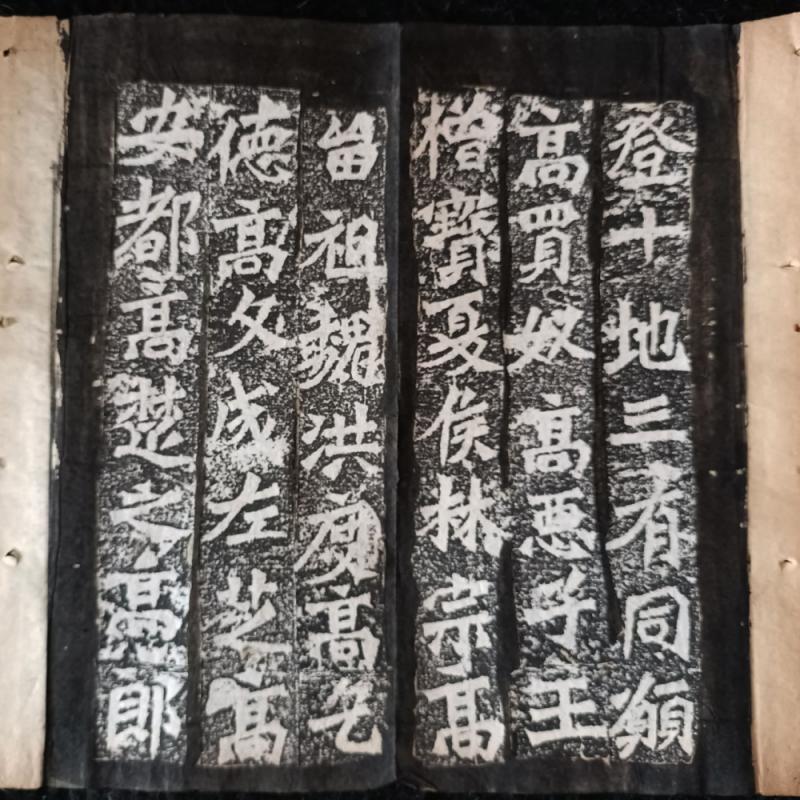 登十地三有同願
高買奴高惡子王
僧寶夏侯林宗高
留祖魏洪度高乞
德高文成左芝高
安都高楚之高郎